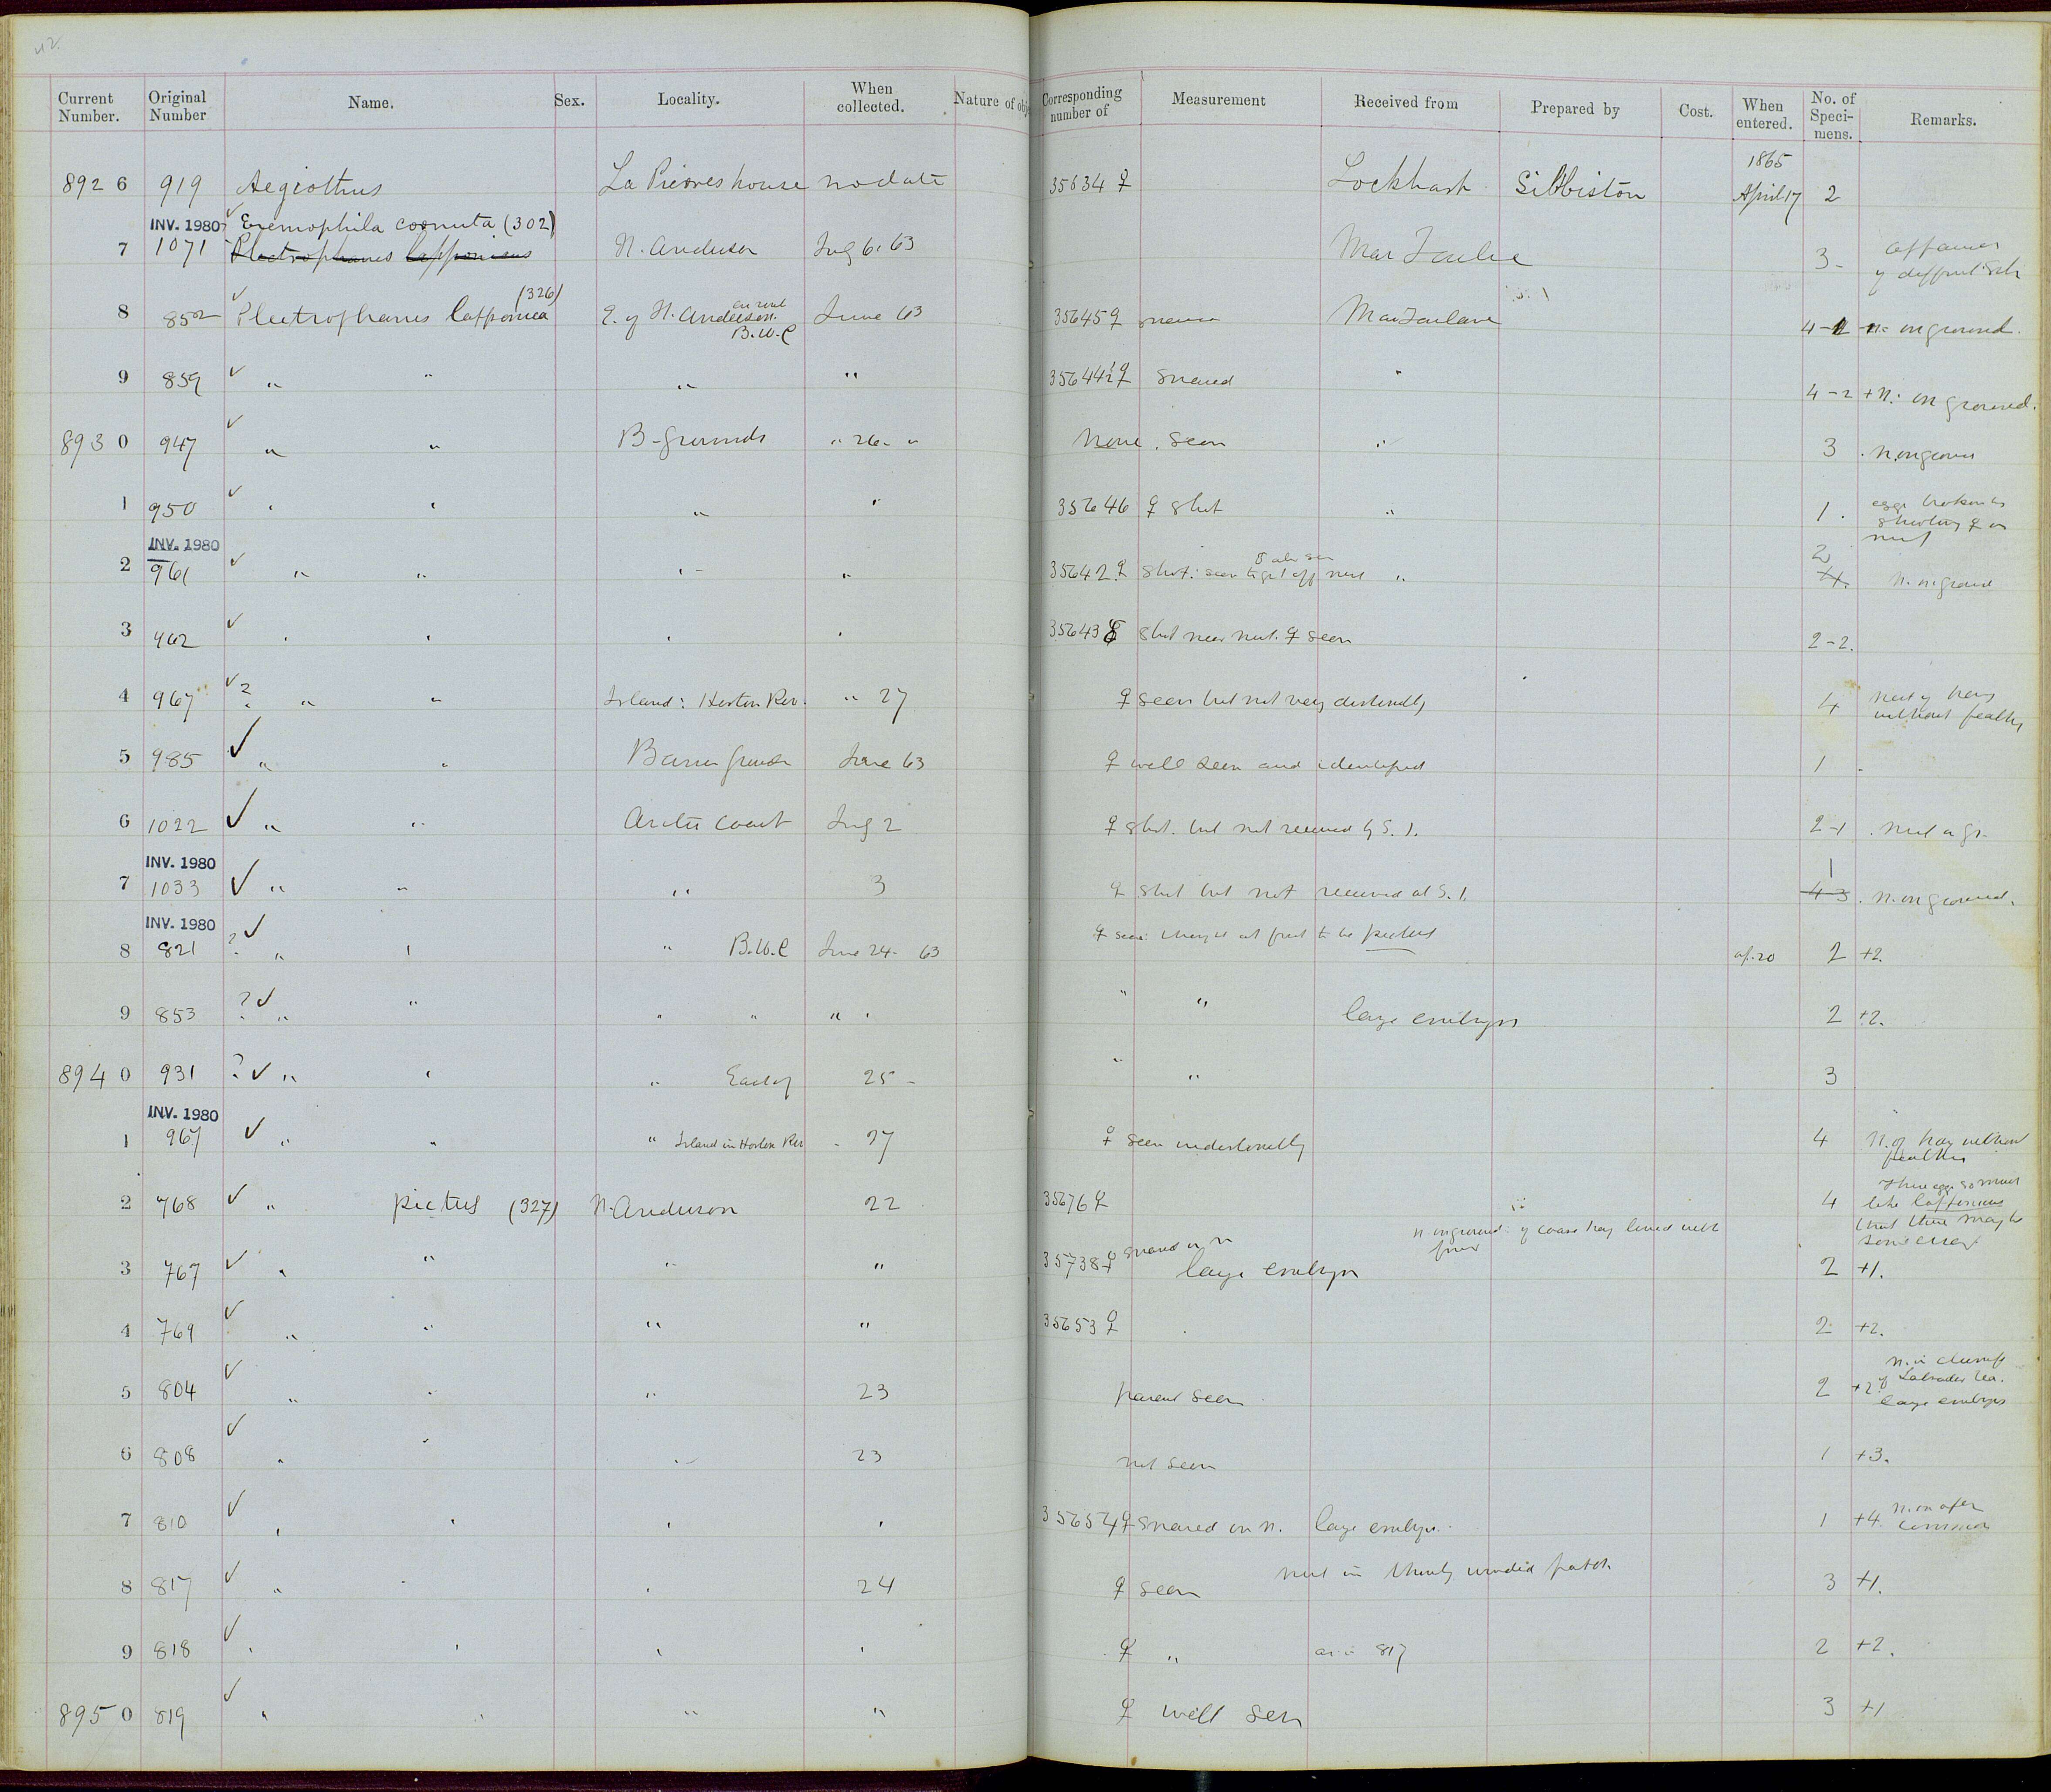 42.
Current Number. Original Number Name. Sex. Locality. When collected. Nature of obj Corresponding number of Measurement Received from Prepared by Cost. When entered. No. of Specimens. Remarks.
8926 919 Aegiothus La Pierres house no date 35634 ♀ Lockhart Sibbiston 1865 April 17 2
INV. 1980 ✓ Eremophila cornuta (302)
7 1071 Plectrophanes lapponicus N. Anderson July 6. 63 MacFarlane 3-
8 852 ✓ Plectrophanes lapponica (326) E. of N. Anderson. B.W.C June 63 35645 ♀ MacFarlane on ground.
9 859 ✓ " " " " 35644 ♀ snared " 4-2 +N. on ground.
8930 947 ✓ " " B-grounds " 26- " None. seen " 3 . N. on ground
1 950 ✓ " " " " 35646 ♀ shot " 1. eggs broken by shooting ♀ on nest
INV. 1980
2 961 ✓ " " " " 35642 ♀ shot: seen to get off nest " 2 4. N. on ground
3 962 ✓ " " " " 35643 shot near nest. ♀ seen 2-2.
4 967 ✓? " " Island: Horton Riv. " 27 ♀ seen but not very distinctly 4 nest of hay without feathers
5 985 ✓ " " Barren grounds June 63 ♀ well seen and identified 1 -
6 1022 ✓ " " Arctic coast July 2 ♀ shot. but not received by S. I. 2-1 . nest on gr.
INV. 1980
7 1033 ✓ " " " 3 ♀ shot but not received at S. I. 1 4-3 . N. on ground.
INV. 1980
8 821 ?✓ " " " B.W.C June 24- 63 ♀ seen thought at first to be pictus ap. 20 2 +2.
9 853 ?✓ " " " " " " " " large embryos 2 +2.
8940 931 ?✓ " " " East of 25- " " 3
INV. 1980
1 967 ✓ " " " Island in Horton Riv - 27 ♀ seen indistinctly 4 N. of hay without feathers
2 768 ✓ " pictus (327) N. Anderson 22 35676 ♀ 4 These eggs so much like lapponicus that there may be some error
n. on ground: of coarse hay lined with finer
3 767 ✓ " " " " 35738 ♀ snared on n large embryos 2 +1.
4 769 ✓ " " " " 35653 ♀ 2 +2.
5 804 ✓ " " " 23 parent seen 2 +2 n. in clump of Labrador tea. large embryos
6 808 ✓ " " " 23 not seen 1 +3.
7 810 ✓ " " " " 35654 ♀ snared on n. large embryos. 1 +4
8 817 ✓ " " " 24 ♀ seen nest in thinly wooded patch 3 +1.
9 818 ✓ " " " " ♀ " as in 817 2 +2.
8950 819 ✓ " " " " ♀ well seen 3 +1